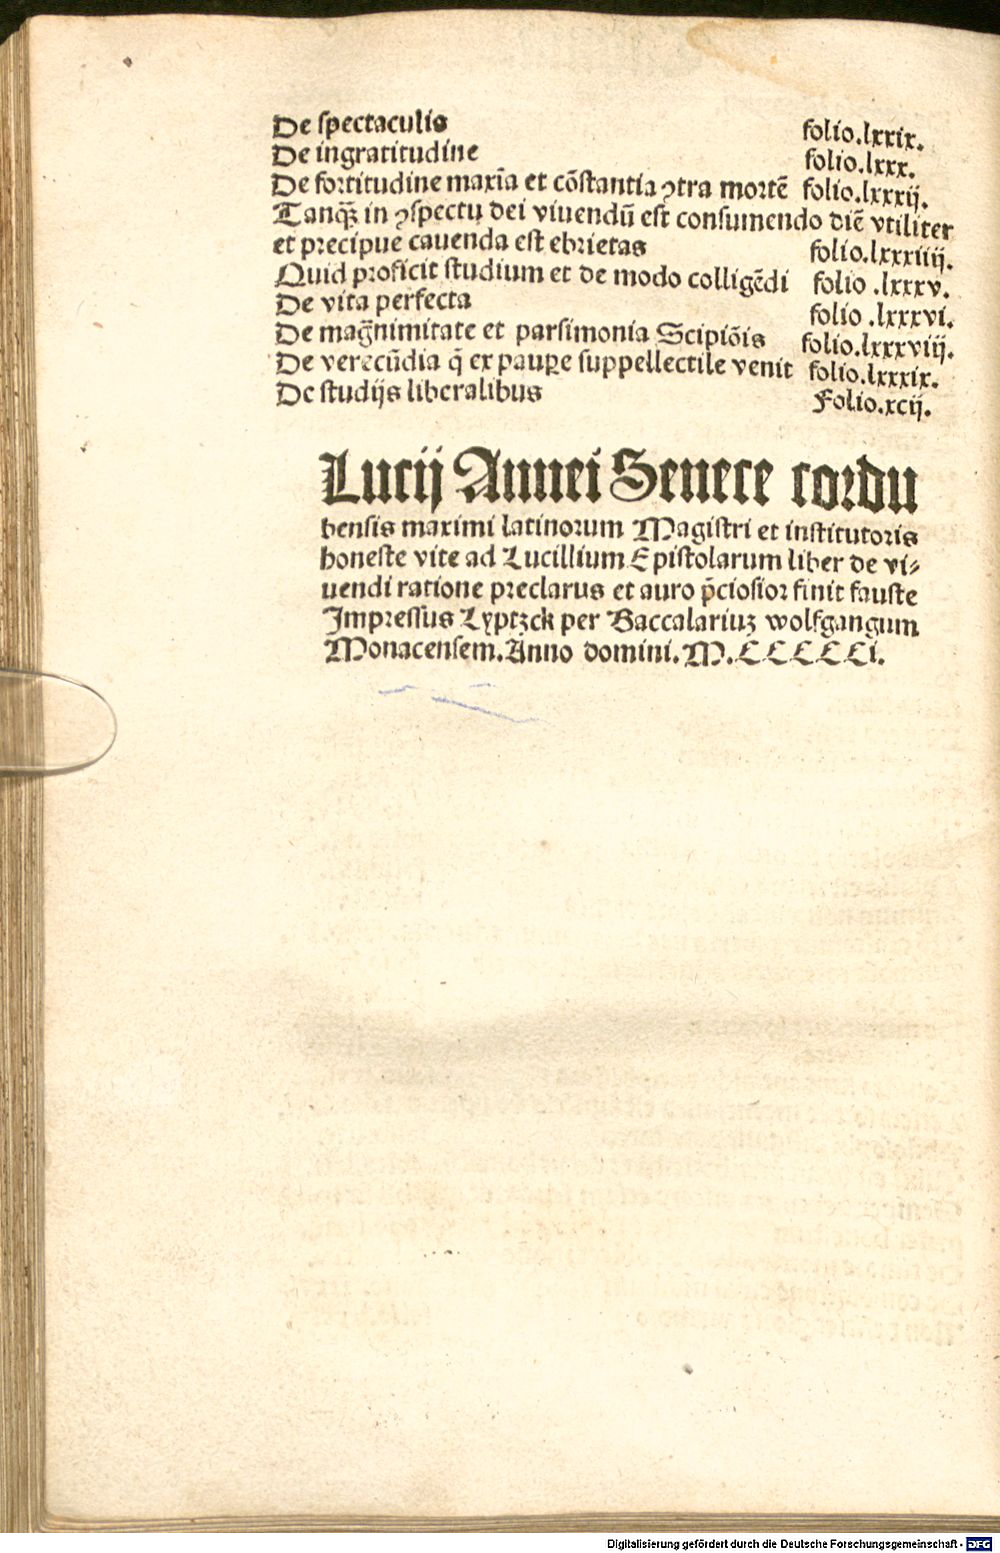 De spectaculis folio.lxxix.
De ingratitudine folio.lxxx.
De fortitudine maxīa et cōstantia ꝯtra mortē folio.lxxxij.
Tanqȝ in ꝯspectu dei viuendū est consumendo diē vtiliter
et precipue cauenda est ebrietas folio.lxxxiiij.
Quid proficit studium et de modo colligēdi folio .lxxxv.
De vita perfecta folio .lxxxvi.
De mag̃nimitate et parsimonia Scipiōis folio.lxxxviij.
De verecūdia q̄ ex pauꝑe suppellectile venit folio.lxxxix.
De studijs liberalibus Folio.xcij.
Lucij Annei Senece cordu
bensis maximi latinorum Magistri et institutoris
honeste vite ad Lucillium Epistolarum liber de vi⸗
uendi ratione preclarus et auro p̄ciosior finit fauste
Impressus Lyptzck per Baccalariuȝ wolfgangum
Monacensem. Anno domini. M.CCCCCi.
Digitalisierung gefördert durch die Deutsche Forschungsgemeinschaft - DFG